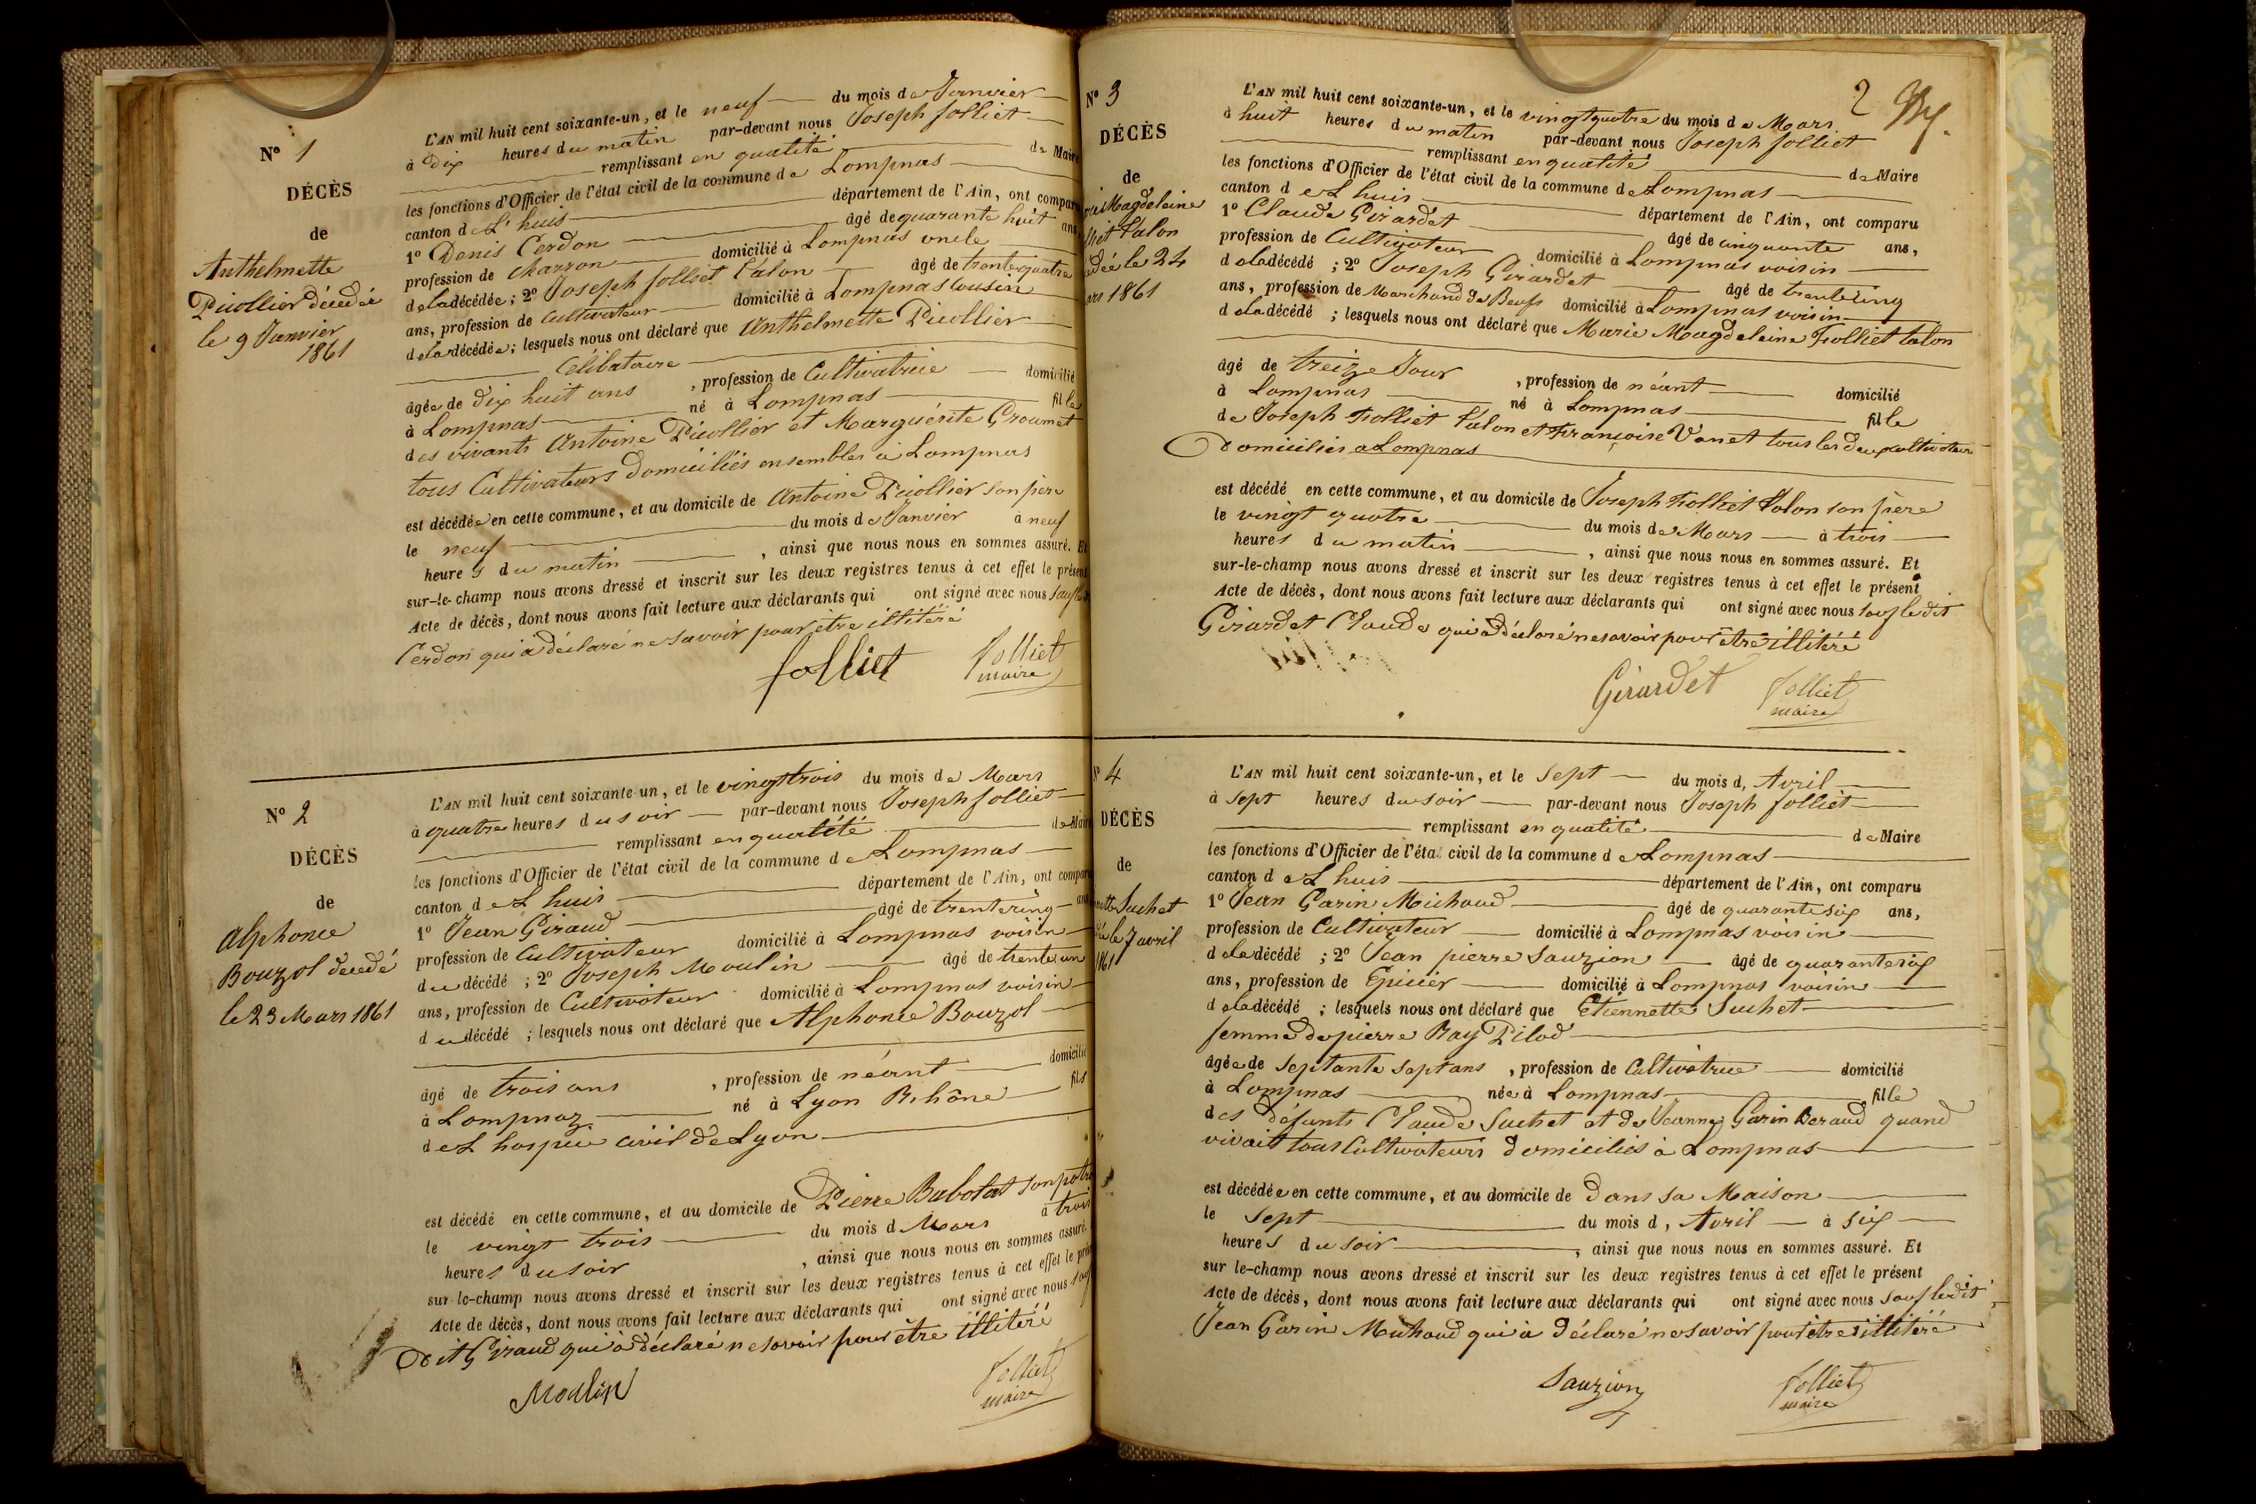 N° 1
DÉCÈS
de
Anthelmette
Picollier décédée
le 9 Janvier
1861
L'AN mil huit cent soixante-un, et le neuf du mois de Janvier
à dix heures du matin par-devant nous Joseph folliet
remplissant en qualité de Maire
les fonctions d'Officier de l'état civil de la commune de Lompnas
canton de L'huis département de l'Ain, ont comparu
1° Denis Cerdon âgé de quarante huit ans
profession de charron domicilié à Lompnas oncle
de la décédée; 2° Joseph folliet Talon âgé de trente quatre
ans, profession de cultivateur domicilié à Lompnas cousin
de la décédée; lesquels nous ont déclaré que Anthelmette Picollier
Célibataire
âgée de dix huit ans, profession de Cultivatrice domicilié
à Lompnas né à Lompnas fille
des vivants Antoine Picollier et Marguérite Groumet
tous Cultivateurs domiciliés ensembles à Lompnas
est décédée en cette commune, et au domicile de Antoine Picollier son père
le neuf du mois de Janvier à neuf
heures du matin, ainsi que nous nous en sommes assuré. Et
sur-le-champ nous avons dressé et inscrit sur les deux registres tenus à cet effet le présent
Acte de décès, dont nous avons fait lecture aux déclarants qui ont signé avec nous sauf
Cerdon qui à déclaré ne savoir pour être illitéré
folliet folliet
maire
N° 2
DÉCÈS
de
Alphonce
Bouzol decedé
le 23 Mars 1861
L'AN mil huit cent soixante-un, et le vingt trois du mois de Mars
à quatre heures du soir par-devant nous Joseph folliet
remplissant en qualité de Maire
les fonctions d'Officier de l'état civil de la commune de Lompnas
canton de L huis département de l'Ain, ont comparu
1° Jean Giraud âgé de trente cinq ans
profession de Cultivateur domicilié à Lompnas voisin
du décédé; 2° Joseph Moulin âgé de trente un
ans, profession de Cultivateur domicilié à Lompnas voisin
du décédé; lesquels nous ont déclaré que Alphonce Bouzol
âgé de trois ans, profession de néant domicilié
à Lompnaz né à Lyon Rhône fils
de L hospice civil de Lyon
est décédé en cette commune, et au domicile de Pierre Babolat son
le vingt trois du mois d Mars à trois
heures du soir, ainsi que nous nous en sommes assuré.
sur-le-champ nous avons dressé et inscrit sur les deux registres tenus à cet effet le
Acte de décès, dont nous avons fait lecture aux déclarants qui ont signé avec nous
Dit Giraud qui à déclaré ne savoir pour être illitéré
Moulin folliet
maire
2
N° 3
DÉCÈS
de
Magdeleine
Talon
le 24
1861
L'AN mil huit cent soixante-un, et le vingt quatre du mois de Mars
à huit heures du matin par-devant nous Joseph folliet
remplissant en qualité de Maire
les fonctions d'Officier de l'état civil de la commune de Lompnas
canton de L huis département de l'Ain, ont comparu
1° Claude Girardet âgé de cinquante ans,
profession de Cultivateur domicilié à Lompnas voisin
de la décédé; 2° Joseph Girardet âgé de trente cinq
ans, profession de Marchand de Beufs domicilié à Lompnas voisin
de la décédé; lesquels nous ont déclaré que Marie Magdeleine Folliet talon
âgé de treize Jour, profession de néant domicilié
à Lompnas né à Lompnas fille
de Joseph Folliet Talon et Françoise Vanet tous les deux cultivateurs
Domiciliés a Lompnas
est décédé en cette commune, et au domicile de Joseph Folliet Talon son père
le vingt quatre du mois de Mars à trois
heures du matin, ainsi que nous nous en sommes assuré. Et
sur-le-champ nous avons dressé et inscrit sur les deux registres tenus à cet effet le présent
Acte de décès, dont nous avons fait lecture aux déclarants qui ont signé avec nous sauf le dit
Girardet Claude qui à déclaré ne savoir pour être illitéré
Girardet folliet
maire
N° 4
DÉCÈS
de
Suchet
le 7 avril
1861
L'AN mil huit cent soixante-un, et le sept du mois d, Avril
à sept heures du soir par-devant nous Joseph folliet
remplissant en qualité de Maire
les fonctions d'Officier de l'état civil de la commune de Lompnas
canton de L huis département de l'Ain, ont comparu
1° Jean Garin Michaud âgé de quarante six ans,
profession de Cultivateur domicilié à Lompnas voisin
de la décédé; 2° Jean pierre Sauzion âgé de quarante six
ans, profession de Epicier domicilié à Lompnas voisin
de la décédé; lesquels nous ont déclaré que Etiennette Suchet
femme de pierre Ray Pilod
âgée de septante sept ans, profession de Cultivatrice domicilié
à Lompnas née à Lompnas fille
des défunts Claude Suchet et de Jeanne Garin Beraud quand
vivait tous Cultivateurs domiciliés à Lompnas
est décédée en cette commune, et au domicile de dans sa Maison
le sept du mois d, Avril à six
heures du soir, ainsi que nous nous en sommes assuré. Et
sur le-champ nous avons dressé et inscrit sur les deux registres tenus à cet effet le présent
Acte de décès, dont nous avons fait lecture aux déclarants qui ont signé avec nous sauf le dit
Jean Garin Michaud qui à déclaré ne savoir pour être illitéré
Sauzion folliet
maire